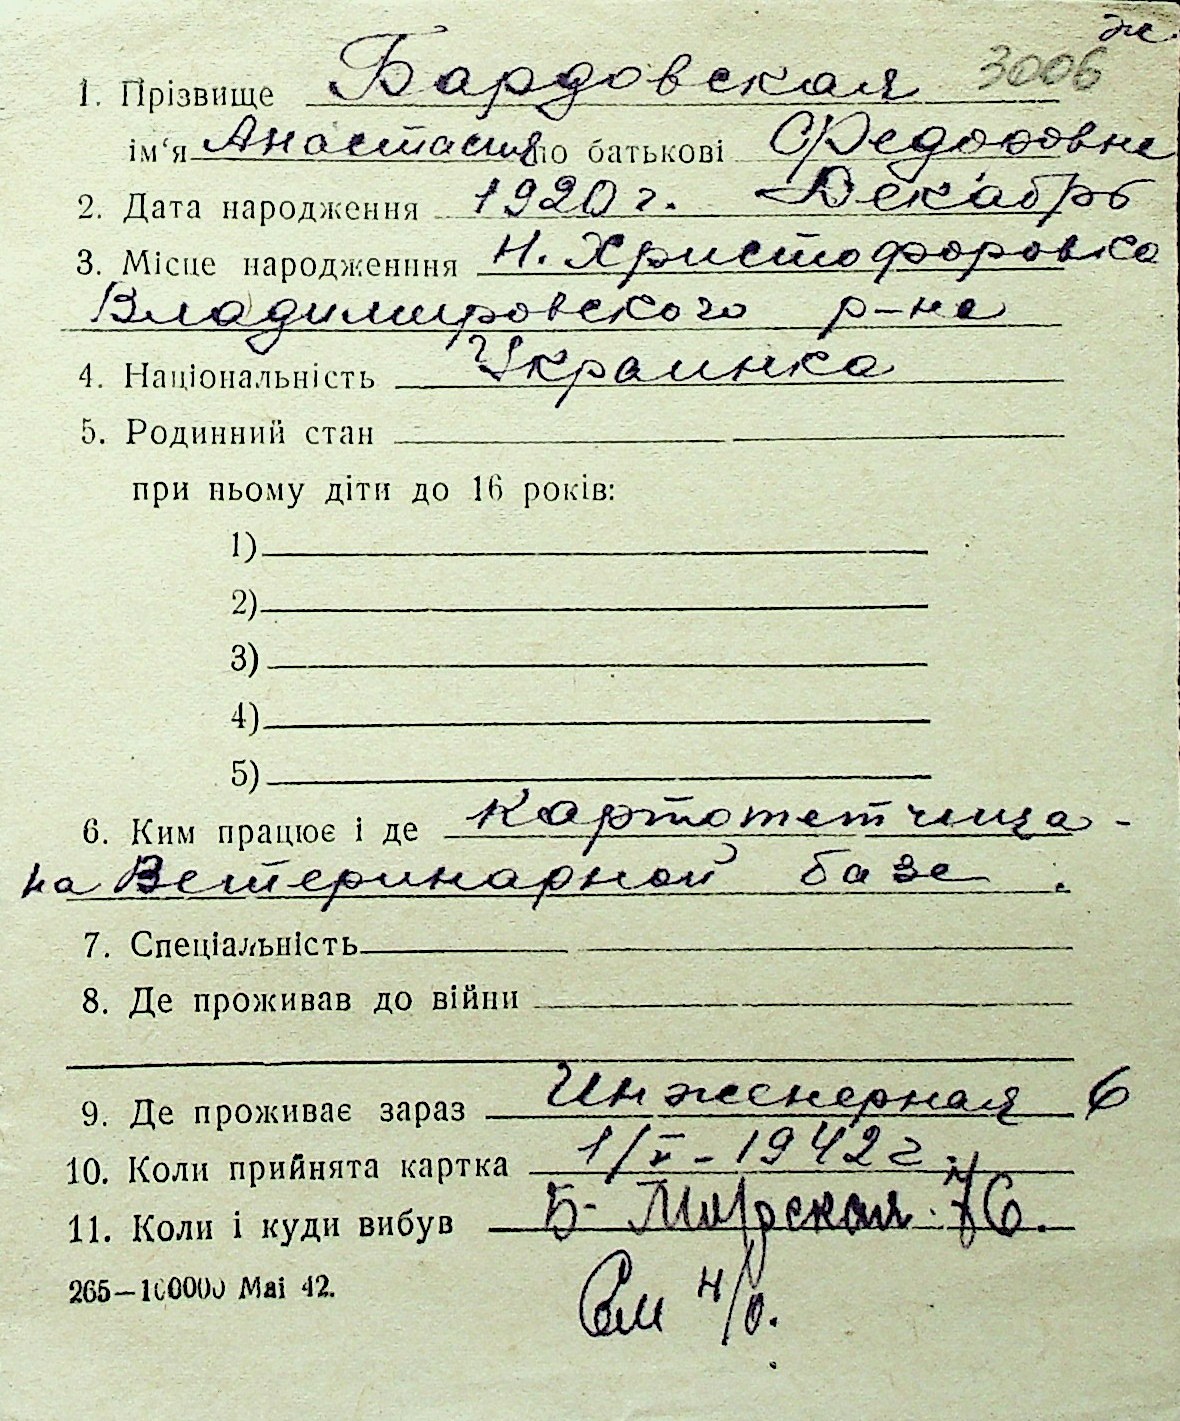 ж.
1. Прізвище Бардовская 3006
ім‘я Анастасия по батькові Федоровна
2. Дата народження 1920 г. Декабрь
3. Місце народженння Н. Христофоровка
Владимировского р-на
4. Національність Украинка
5. Родинний стан
при ньому діти до 16 років:
1)
2)
3)
4)
5)
6. Ким працює і де картотетчица -
на Ветеринарной базе .
7. Спеціальність
8. Де проживав до війни
9. Де проживає зараз Инженерная 6
10. Коли прийнята картка 1/V - 1942 г.
11. Коли і куди вибув Б- Морская 76.
265—100000 Mai 42.
См н/о.